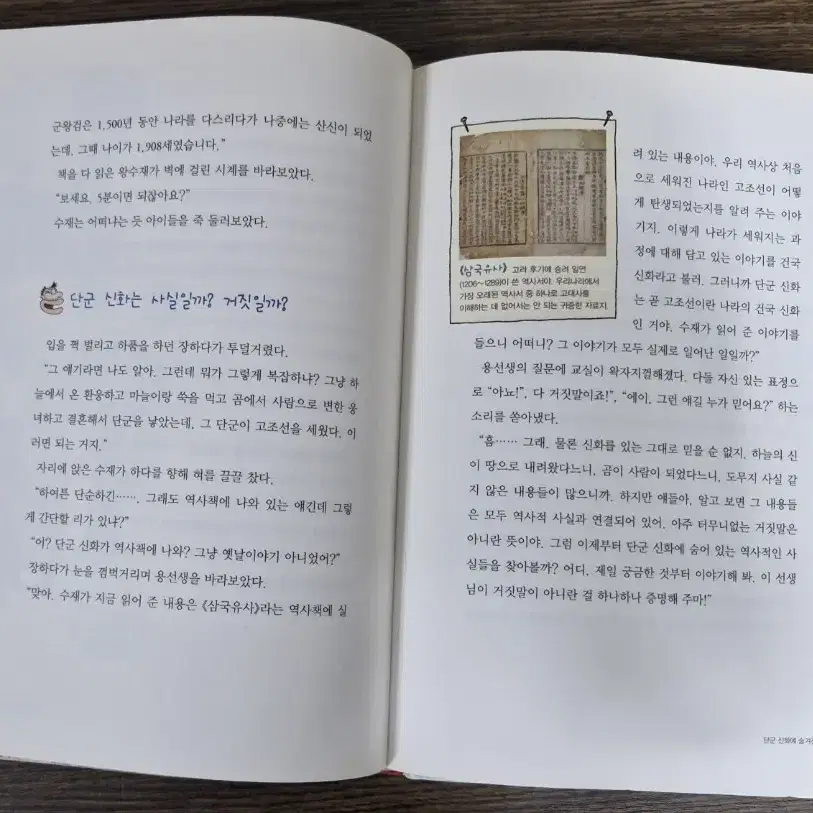 군왕검은 1,500년 동안 나라를 다스리다가 나중에는 산신이 되었
는데, 그때 나이가 1,908세였습니다.”
책을 다 읽은 왕수재가 벽에 걸린 시계를 바라보았다.
“보세요. 5분이면 되잖아요?”
수재는 어떠냐는 듯 아이들을 죽 둘러보았다.
단군 신화는 사실일까? 거짓일까?
입을 쩍 벌리고 하품을 하던 장하다가 투덜거렸다.
“그 얘기라면 나도 알아. 그런데 뭐가 그렇게 복잡하냐? 그냥 하
늘에서 온 환웅하고 마늘이랑 쑥을 먹고 곰에서 사람으로 변한 웅
녀하고 결혼해서 단군을 낳았는데, 그 단군이 고조선을 세웠다. 이
러면 되는 거지.”
자리에 앉은 수재가 하다를 향해 혀를 끌끌 찼다.
“하여튼 단순하긴……. 그래도 역사책에 나와 있는 얘긴데 그렇
게 간단할 리가 있냐?”
“어? 단군 신화가 역사책에 나와? 그냥 옛날이야기 아니었어?”
장하다가 눈을 껌벅거리며 용선생을 바라보았다.
“맞아. 수재가 지금 읽어 준 내용은 《삼국유사》라는 역사책에 실
《삼국유사》 고려 후기에 승려 일연
(1206~1289)이 쓴 역사서야. 우리나라에서
가장 오래된 역사서 중 하나로 고대사를
이해하는 데 없어서는 안 되는 귀중한 자료지.
려 있는 내용이야. 우리 역사상 처음
으로 세워진 나라인 고조선이 어떻
게 탄생되었는지를 알려 주는 이야
기지. 이렇게 나라가 세워지는 과
정에 대해 담고 있는 이야기를 건국
신화라고 불러. 그러니까 단군 신화
는 곧 고조선이란 나라의 건국 신화
인 거야. 수재가 읽어 준 이야기를
들으니 어떠니? 그 이야기가 모두 실제로 일어난 일일까?”
용선생의 질문에 교실이 왁자지껄해졌다. 다들 자신 있는 표정으
로 “아뇨!”, “다 거짓말이죠!”, “에이, 그런 얘길 누가 믿어요?” 하는
소리를 쏟아냈다.
“흠…… 그래. 물론 신화를 있는 그대로 믿을 순 없지. 하늘의 신
이 땅으로 내려왔다느니, 곰이 사람이 되었다느니, 도무지 사실 같
지 않은 내용들이 많으니까. 하지만 얘들아. 알고 보면 그 내용들
은 모두 역사적 사실과 연결되어 있어. 아주 터무니없는 거짓말은
아니란 뜻이야. 그럼 이제부터 단군 신화에 숨어 있는 역사적인 사
실들을 찾아볼까? 어디, 제일 궁금한 것부터 이야기해 봐. 이 선생
님이 거짓말이 아니란 걸 하나하나 증명해 주마!”
단군 신화에 숨겨진